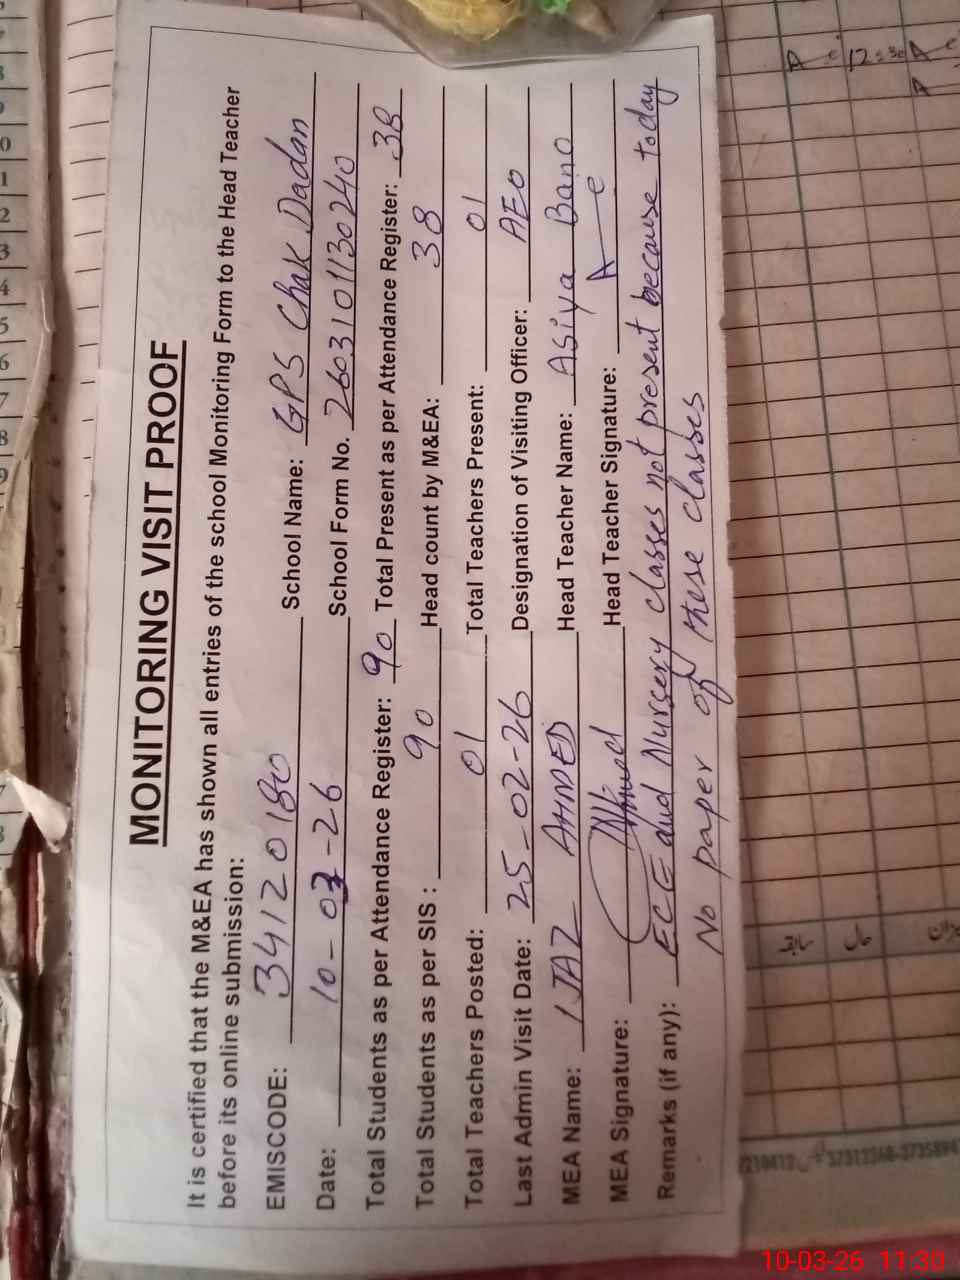 MONITORING VISIT PROOF
It is certified that the M&EA has shown all entries of the school Monitoring Form to the Head Teacher
before its online submission:
EMISCODE: 34120180 School Name: GPS Chak Dadan
Date: 10-03-26 School Form No. 2603101130240
Total Students as per Attendance Register: 90 Total Present as per Attendance Register: 38
Total Students as per SIS : 90 Head count by M&EA: 38
Total Teachers Posted: 01 Total Teachers Present: 01
Last Admin Visit Date: 25-02-26 Designation of Visiting Officer: AEO
MEA Name: IJAZ AHMED Head Teacher Name: Asiya Bano
MEA Signature: Head Teacher Signature:
Remarks (if any): ECE and Nursery classes not present because today
No paper of these classes
سابقہ
حال
میزان
10-03-26 11:30